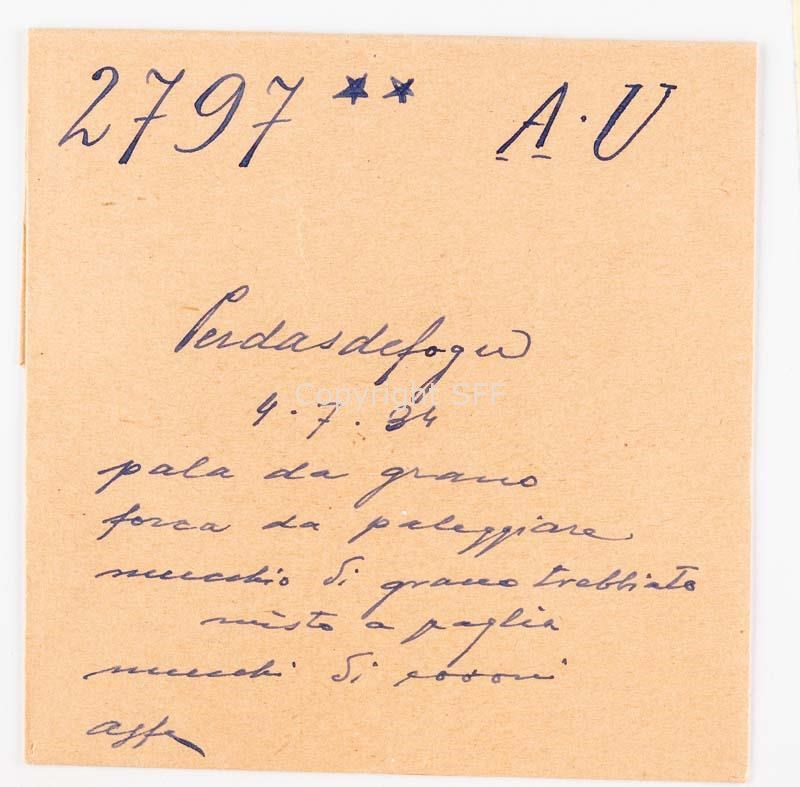 2797 ** A.U
Perdasdefogu
4.7.34
pala da grano
forca da paleggiare
mucchio di grano trebbiato
misto a paglia
mucchi di covoni
Copyright SFF